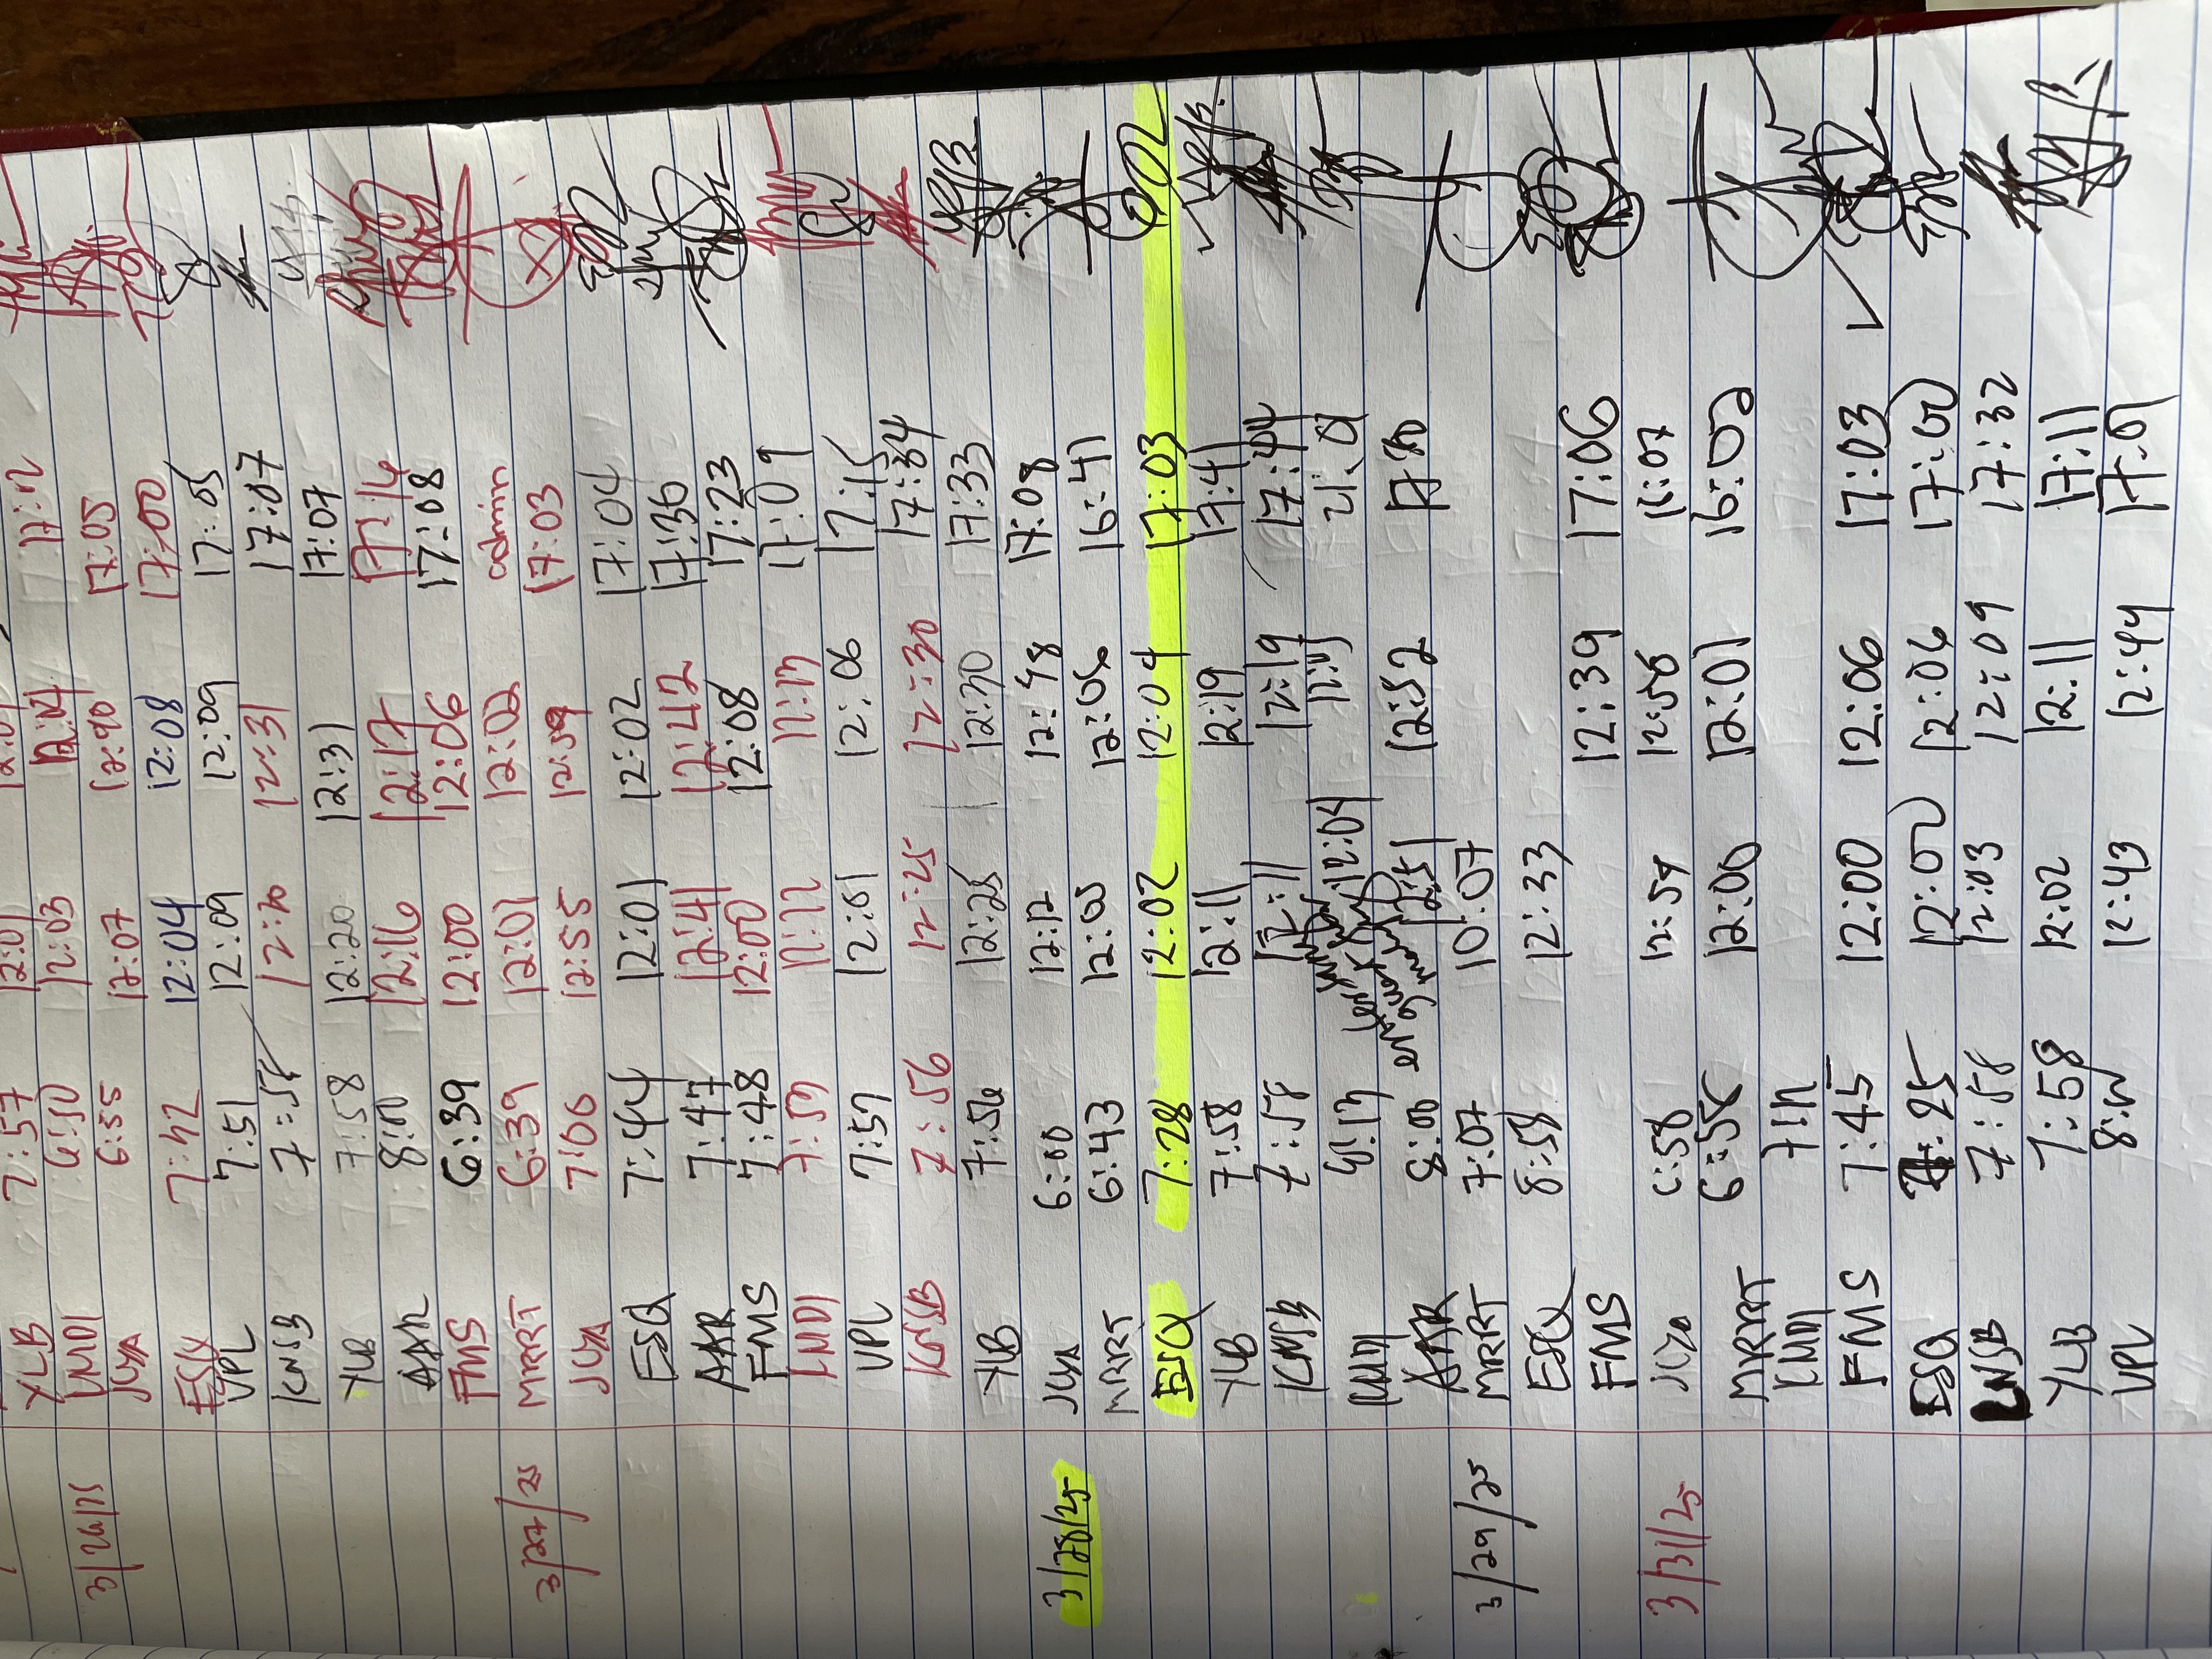 YLB 7:57 12:01 17:02
KMDI 6:50 12:03 12:04
3/26/25 JCYA 6:55 12:07 12:40 17:05
ESQ 7:42 12:04 12:08 17:00
VPL 7:51 12:09 12:09 17:05
KNSB 7:58 12:20 12:31 17:07
YLB 7:58 12:20 12:31 17:07
AAR 8:00 12:16 12:17 17:14
FMS 6:39 12:00 12:06 17:08
3/27/25 MRRT 6:39 12:01 12:02 admin
JCYA 7:00 12:55 12:59 17:03
ESQ 7:44 12:01 12:02 17:04
AAR 7:47 12:41 12:42 17:36
FMS 7:48 12:00 12:08 17:23
KMDI 7:59 12:12 12:13 17:09
VPL 7:57 12:01 12:06 17:15
KNSB 7:56 12:25 12:30 17:34
YLB 7:56 12:25 12:30 17:33
3/28/25 JCYA 6:00 12:12 12:48 17:08
MRRT 6:43 12:05 12:06 16:41
ESQ 7:28 12:02 12:04 17:03
YLB 7:58 12:11 12:19 17:41
KNSB 7:58 12:11 12:19 17:44
KMDI 12:04
AAR 8:00 12:51 12:52
3/29/25 MRRT 7:07 10:07
ESQ 8:58 12:33
FMS 12:39 17:06
3/31/25 JCYA 6:58 12:54 12:56 16:07
MRRT 6:55 12:00 12:01 16:02
KMDI
FMS 7:45 12:00 12:06 17:03
ESQ 12:00 12:06 17:00
KNSB 7:58 12:03 12:09 17:32
YLB 7:58 12:02 12:11 17:11
VPL 12:43 12:44 17:01